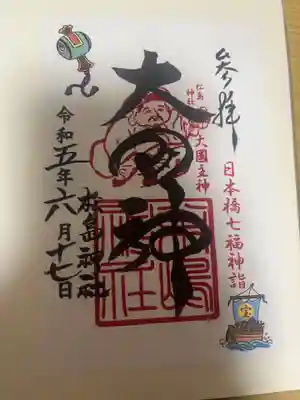 参拝
日本橋七福神詣
宝
松島神社
大國主神
大 神
松島神社
令和五年六月十七日